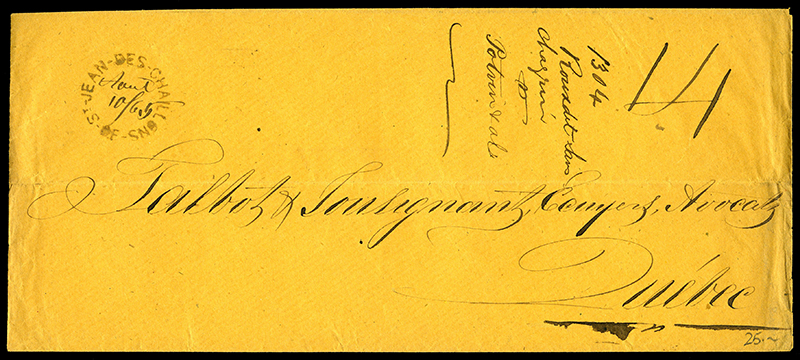 ST-JEAN-DES-CHAILLONS
Aout
10/65
1304
chagrin
vs
Potvin & al
14
Talbot & Tousignant, Ecuyers, Avocats
Québec
25.~